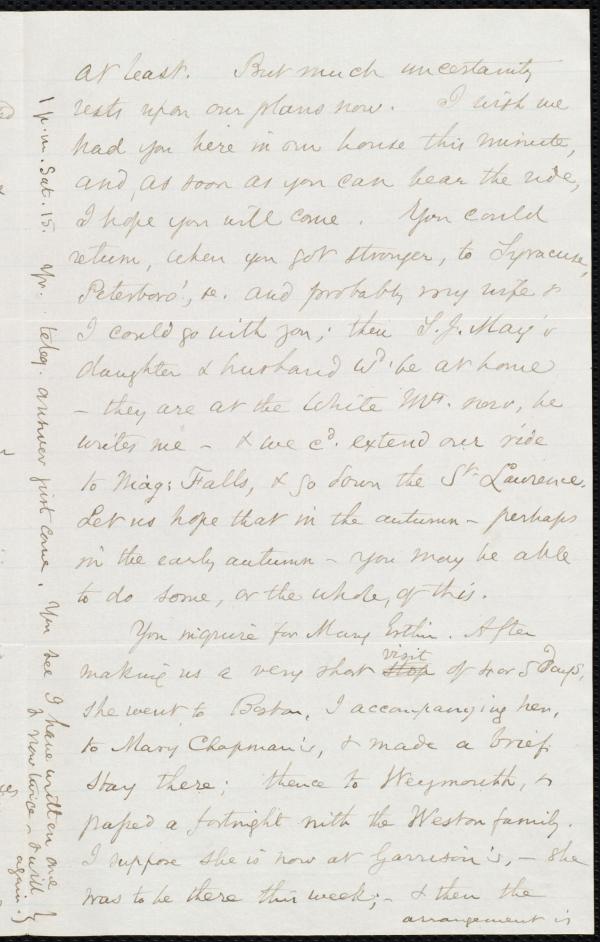 at least. But much uncertainty
rests upon our plans now. I wish we
had you here in our house this minute,
and, as soon as you can bear the ride,
I hope you will come. You could
return, when you got stronger, to Syracuse,
Peterboro', &c. and probably my wife &
I could go with you; then S. J. May's
daughter & husband wd. be at home
- they are at the White Mts. now, he
writes me - & we cd. extend our ride
to Niag: Falls, & go down the St. Lawrence.
Let us hope that in the autumn - perhaps
in the early autumn - you may be able
to do some, or the whole, of this.
You inquire for Mary Estlin. After
making us a very short stop visit of 4 or 5 days,
she went to Boston, I accompanying her,
to Mary Chapman's, & made a brief
stay there; thence to Weymouth, &
passed a fortnight with the Weston family.
I suppose she is now at Garrison's, - she
was to be there this week; - & then the
arrangement is
1 p.m. Sat. 15. Yr. teleg. answer just come. You see I have written one
& now twice & will
again.